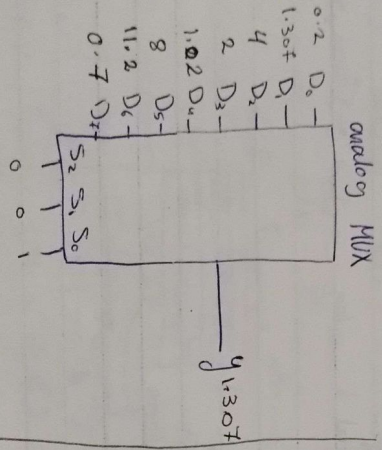 analog MUX
0.2 D0
1.307 D1
4 D2
2 D3
1.02 D4
8 D5
11.2 D6
0.7 D7
y 1.307
S2 S1 S0
0 0 1